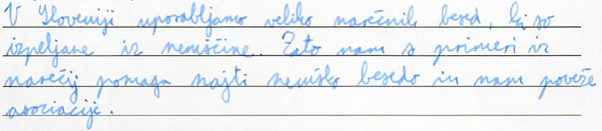 V Sloveniji uporabljamo veliko narečnih besed, ki so
izpeljane iz nemščine. Zato nam s primeri iz
narečij pomaga najti nemško besedo in nam poveže
asociacije.